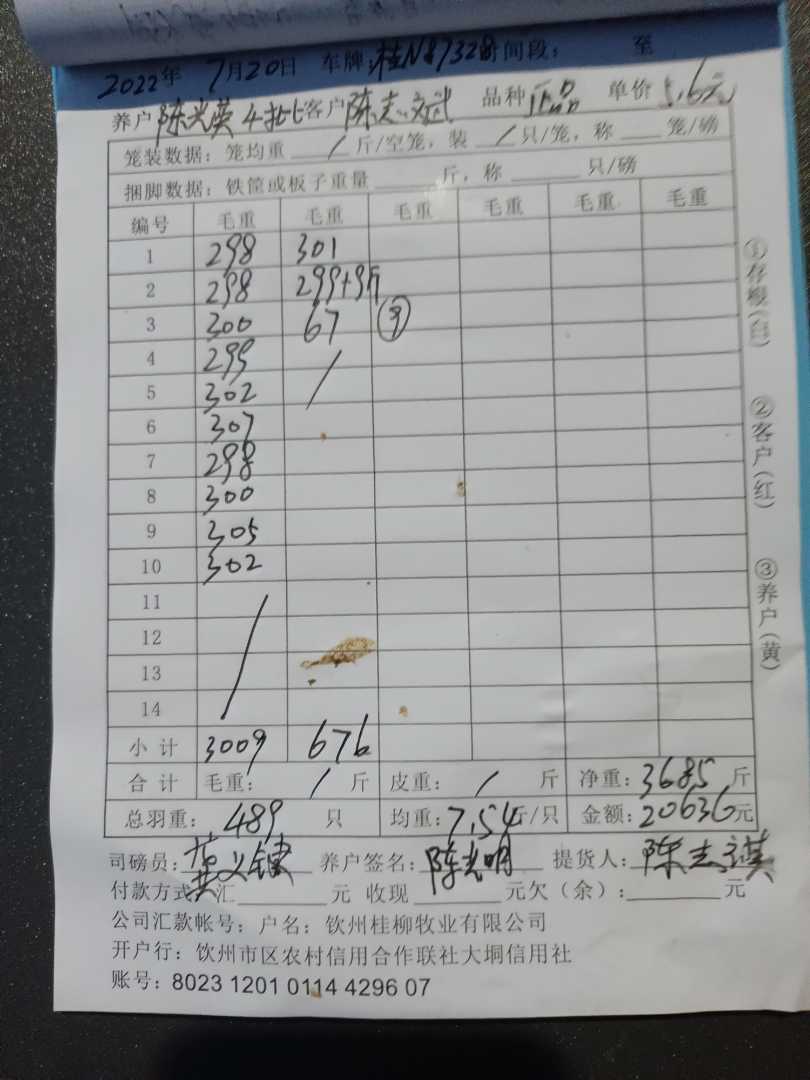 2022年 7月20日 车牌:桂N87328时间段: 至
养户 陈光英 4批 客户 陈志武 品种 正品 单价 5.6元
笼装数据:笼均重 / 斤/空笼,装 / 只/笼,称 笼/磅
捆脚数据:铁筐或板子重量 斤,称 只/磅
编号 毛重 毛重 毛重 毛重 毛重 毛重
1 298 301
2 298 299+9斤
3 300 67 ⑨
4 299 /
5 302
6 307
7 298
8 300
9 305
10 302
11 /
12
13
14
小计 3009 676
合计 毛重: / 斤 皮重: / 斤 净重:3685斤
总羽重: 489 只 均重:7.54斤/只 金额:20636元
司磅员: 养户签名:陈光明 提货人:陈志
付款方式:汇 元 收现 元欠(余): 元
公司汇款帐号:户名:钦州桂柳牧业有限公司
开户行:钦州市区农村信用合作联社大垌信用社
账号:8023 1201 0114 4296 07
①存根(白)
②客户(红)
③养户(黄)